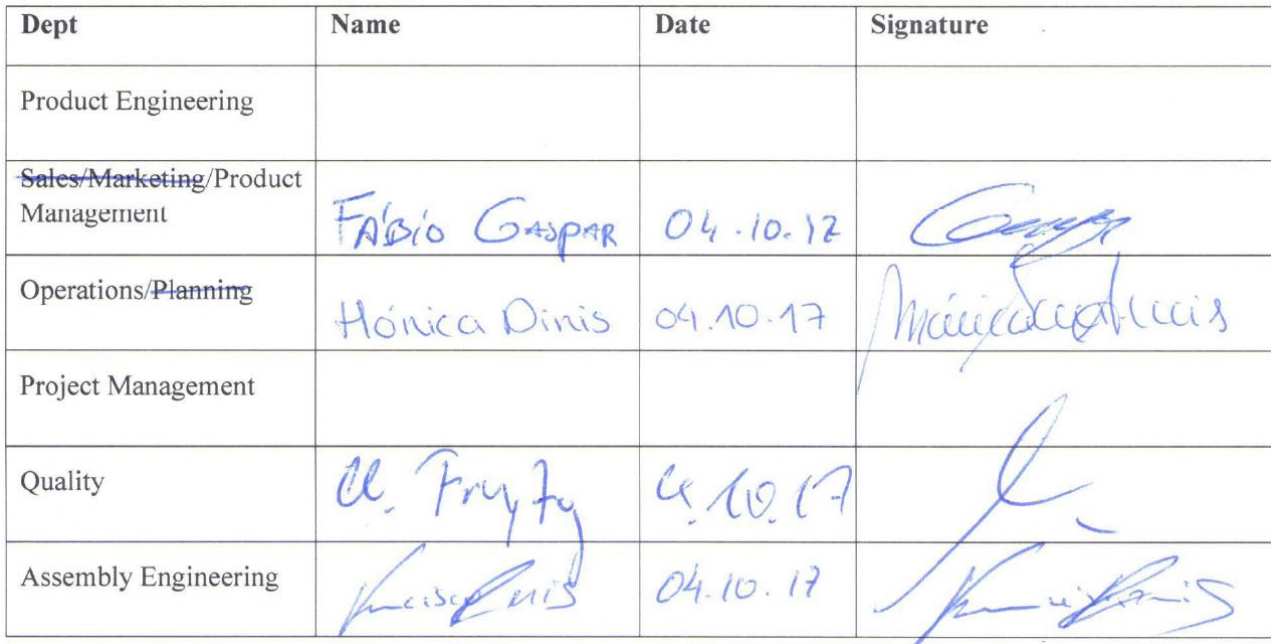 Dept Name Date Signature
Product Engineering
Sales/Marketing/Product
Management FÁBIO GASPAR 04.10.17
Operations/Planning Mónica Dinis 04.10.17
Project Management
Quality 4.10.17
Assembly Engineering 04.10.17